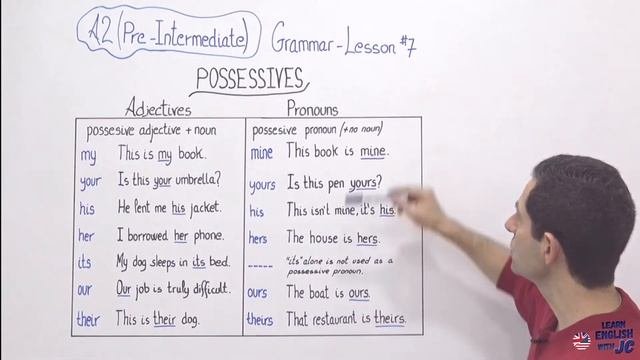 A2 (Pre-Intermediate) Grammar-Lesson #7
POSSESSIVES
Adjectives Pronouns
possesive adjective + noun possesive pronoun (+no noun)
my This is my book. mine This book is mine.
your Is this your umbrella? yours Is this pen yours?
his He lent me his jacket. his This isn't mine, it's his.
her I borrowed her phone. hers The house is hers.
its My dog sleeps in its bed. ----- "its" alone is not used as a
possessive pronoun.
our Our job is truly difficult. ours The boat is ours.
their This is their dog. theirs That restaurant is theirs.
LEARN
ENGLISH
WITH JC